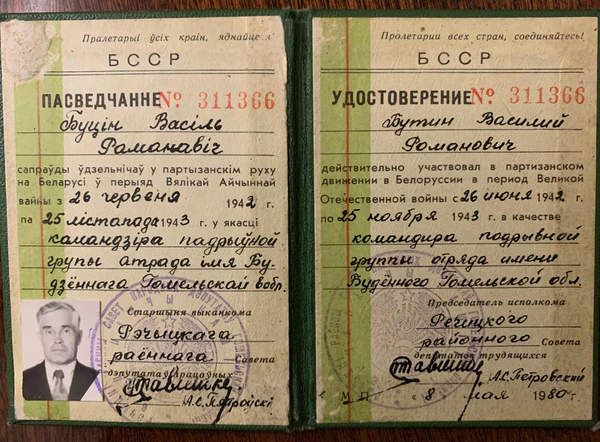 Пралетарыі ўсіх краін, яднайцеся!
БССР
ПАСВЕДЧАННЕ № 311366
Буцін Васіль
Раманавіч
сапраўды ўдзельнічаў у партызанскім руху
на Беларусі ў перыяд Вялікай Айчыннай
вайны з 26 червеня 1942 г.
па 25 лістапада 1943 г. у якасці
камандзіра падрыўной
групы атрада імя Бу-
дзённага Гомельскай вобл.
Старшыня выканкома
Рэчыцкага
раённага Савета
дэпутатаў працоўных
А.С. Пятроўскі
Пролетарии всех стран, соединяйтесь!
БССР
УДОСТОВЕРЕНИЕ № 311366
Бутин Василий
Романович
действительно участвовал в партизанском
движении в Белоруссии в период Великой
Отечественной войны с 26 июня 1942 г.
по 25 ноября 1943 г. в качестве
командира подрывной
группы отряда имени
Будённого Гомельской обл.
Председатель исполкома
Речицкого
районного Совета
депутатов трудящихся
А.С. Петровский
М.П. «8» мая 1980 г.